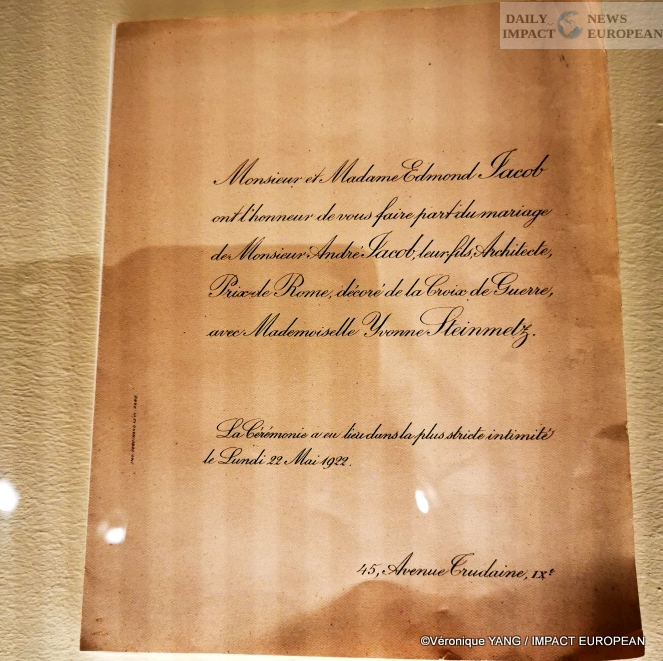 DAILY NEWS
IMPACT EUROPEAN
Monsieur et Madame Edmond Jacob
ont l'honneur de vous faire part du mariage
de Monsieur André Jacob, leur fils, Architecte,
Prix de Rome, décoré de la Croix de Guerre,
avec Mademoiselle Yvonne Steinmetz.
La Cérémonie a eu lieu dans la plus stricte intimité
le Lundi 22 Mai 1922.
45, Avenue Trudaine, IXᵉ
©Véronique YANG / IMPACT EUROPEAN